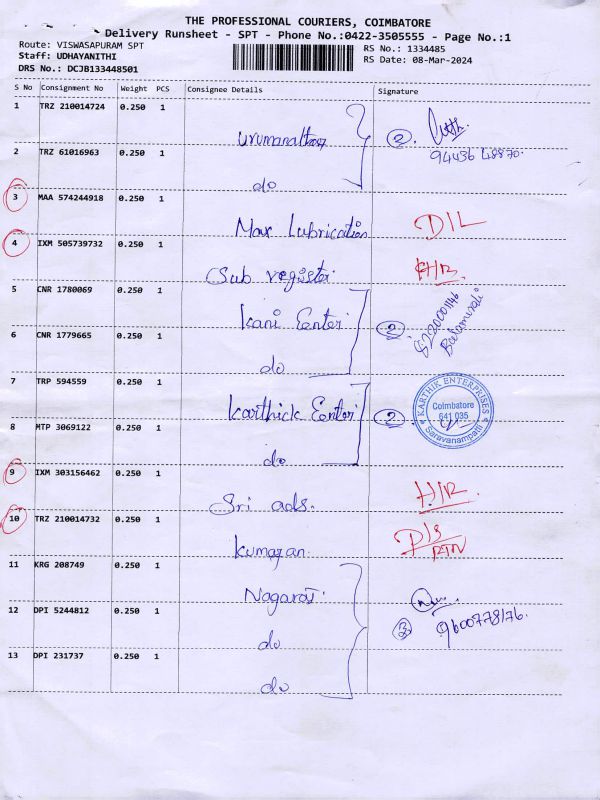 THE PROFESSIONAL COURIERS, COIMBATORE
Delivery Runsheet - SPT - Phone No.:0422-3505555 - Page No.:1
Route: VISWASAPURAM SPT
Staff: UDHAYANITHI
DRS No.: DCJB133448501
RS No.: 1334485
RS Date: 08-Mar-2024
S No Consignment No Weight PCS Consignee Details Signature
1 TRZ 210014724 0.250 1
2 TRZ 61016963 0.250 1 do
2 94436 48870
3 MAA 574244918 0.250 1 Max Lubrication D/L
4 IXM 505739732 0.250 1 Sub register
5 CNR 1780069 0.250 1 Kani Enteri
6 CNR 1779665 0.250 1 do
2 Balamurali
7 TRP 594559 0.250 1 Karthick Enteri
8 MTP 3069122 0.250 1 do
2
KARTHIK ENTERPRISES
Coimbatore
641 035
Saravanampatti
9 IXM 303156462 0.250 1 Sri ads. H/R.
10 TRZ 210014732 0.250 1 Kumaran D/S
RTN
11 KRG 208749 0.250 1 Nagaraj
12 DPI 5244812 0.250 1 do
3 9600778176.
13 DPI 231737 0.250 1 do